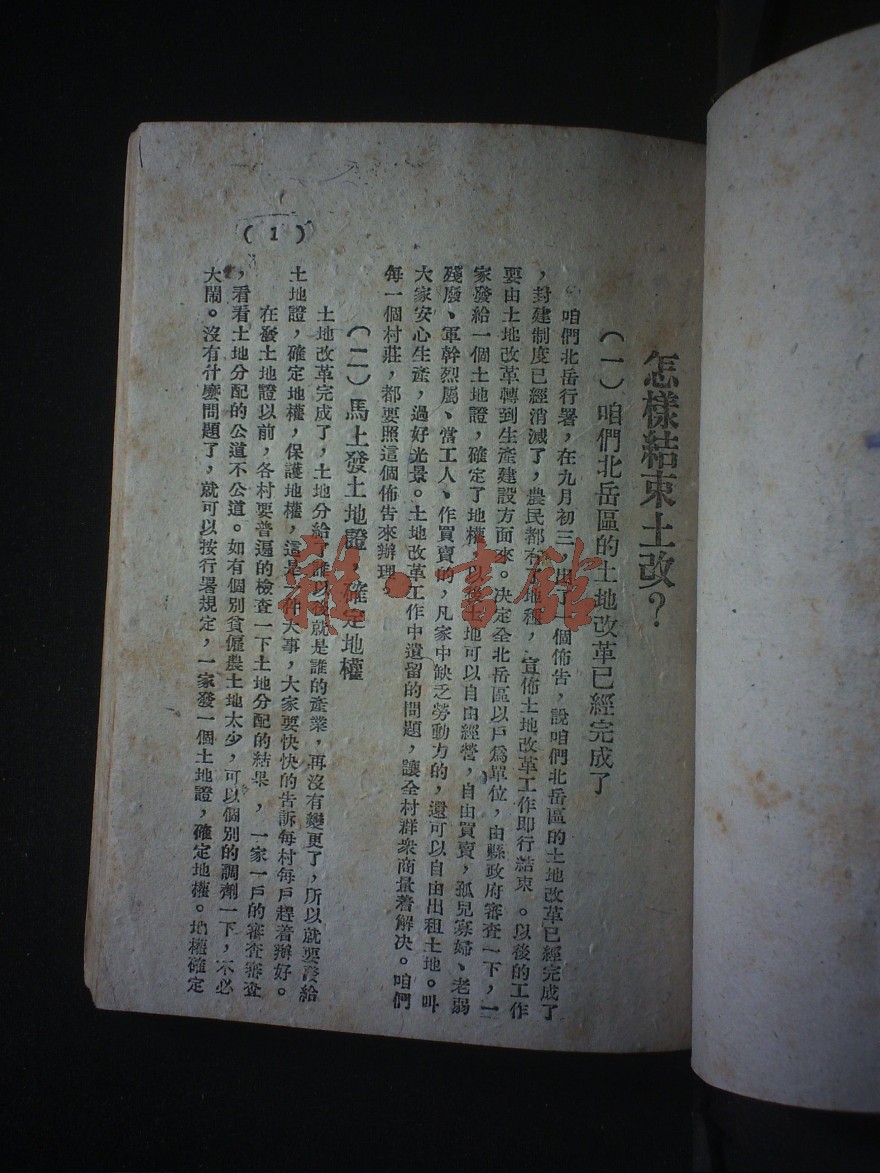 怎樣結束土改？
（一）咱們北岳區的土地改革已經完成了
咱們北岳行署，在九月初三，出了一個佈告，說咱們北岳區的土地改革已經完成了
，封建制度已經消滅了，農民都有了地種，宣佈土地改革工作即行結束。以後的工作
要由土地改革轉到生產建設方面來。决定全北岳區以戶為單位，由縣政府審查一下，一
家發給一個土地證，確定了地權，以後土地可以自由經營，自由買賣，孤兒寡婦、老弱
殘廢、軍幹烈屬、當工人、作買賣的，凡家中缺乏勞動力的，還可以自由出租土地。叫
大家安心生產，過好光景。土地改革工作中遺留的問題，讓全村群衆商量着解决。咱們
每一個村莊，都要照這個佈告來辦理。
（二）馬上發土地證，確定地權
土地改革完成了，土地分給誰以後就是誰的產業，再沒有變更了，所以就要發給
土地證，確定地權，保護地權，這是一件大事，大家要快快的告訴每村每戶趕着辦好。
在發土地證以前，各村要普遍的檢查一下土地分配的結果，一家一戶的審查審查
，看看土地分配的公道不公道。如有個別貧僱農土地太少，可以個別的調劑一下，不必
大鬧。沒有什麽問題了，就可以按行署規定，一家發一個土地證，確定地權。地權確定
（1）
雜·書館